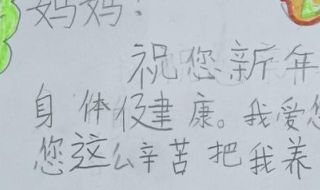 妈妈：
祝您新年
身体健康。我爱您
您这么辛苦把我养